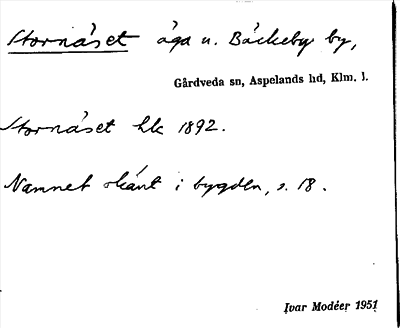 Stornäset äga u. Bäckeby by,
Gårdveda sn, Aspelands hd, Klm. l.
Stornäset hlk 1892.
Namnet okänt i bygden, s. 18.
Ivar Modéer 1951